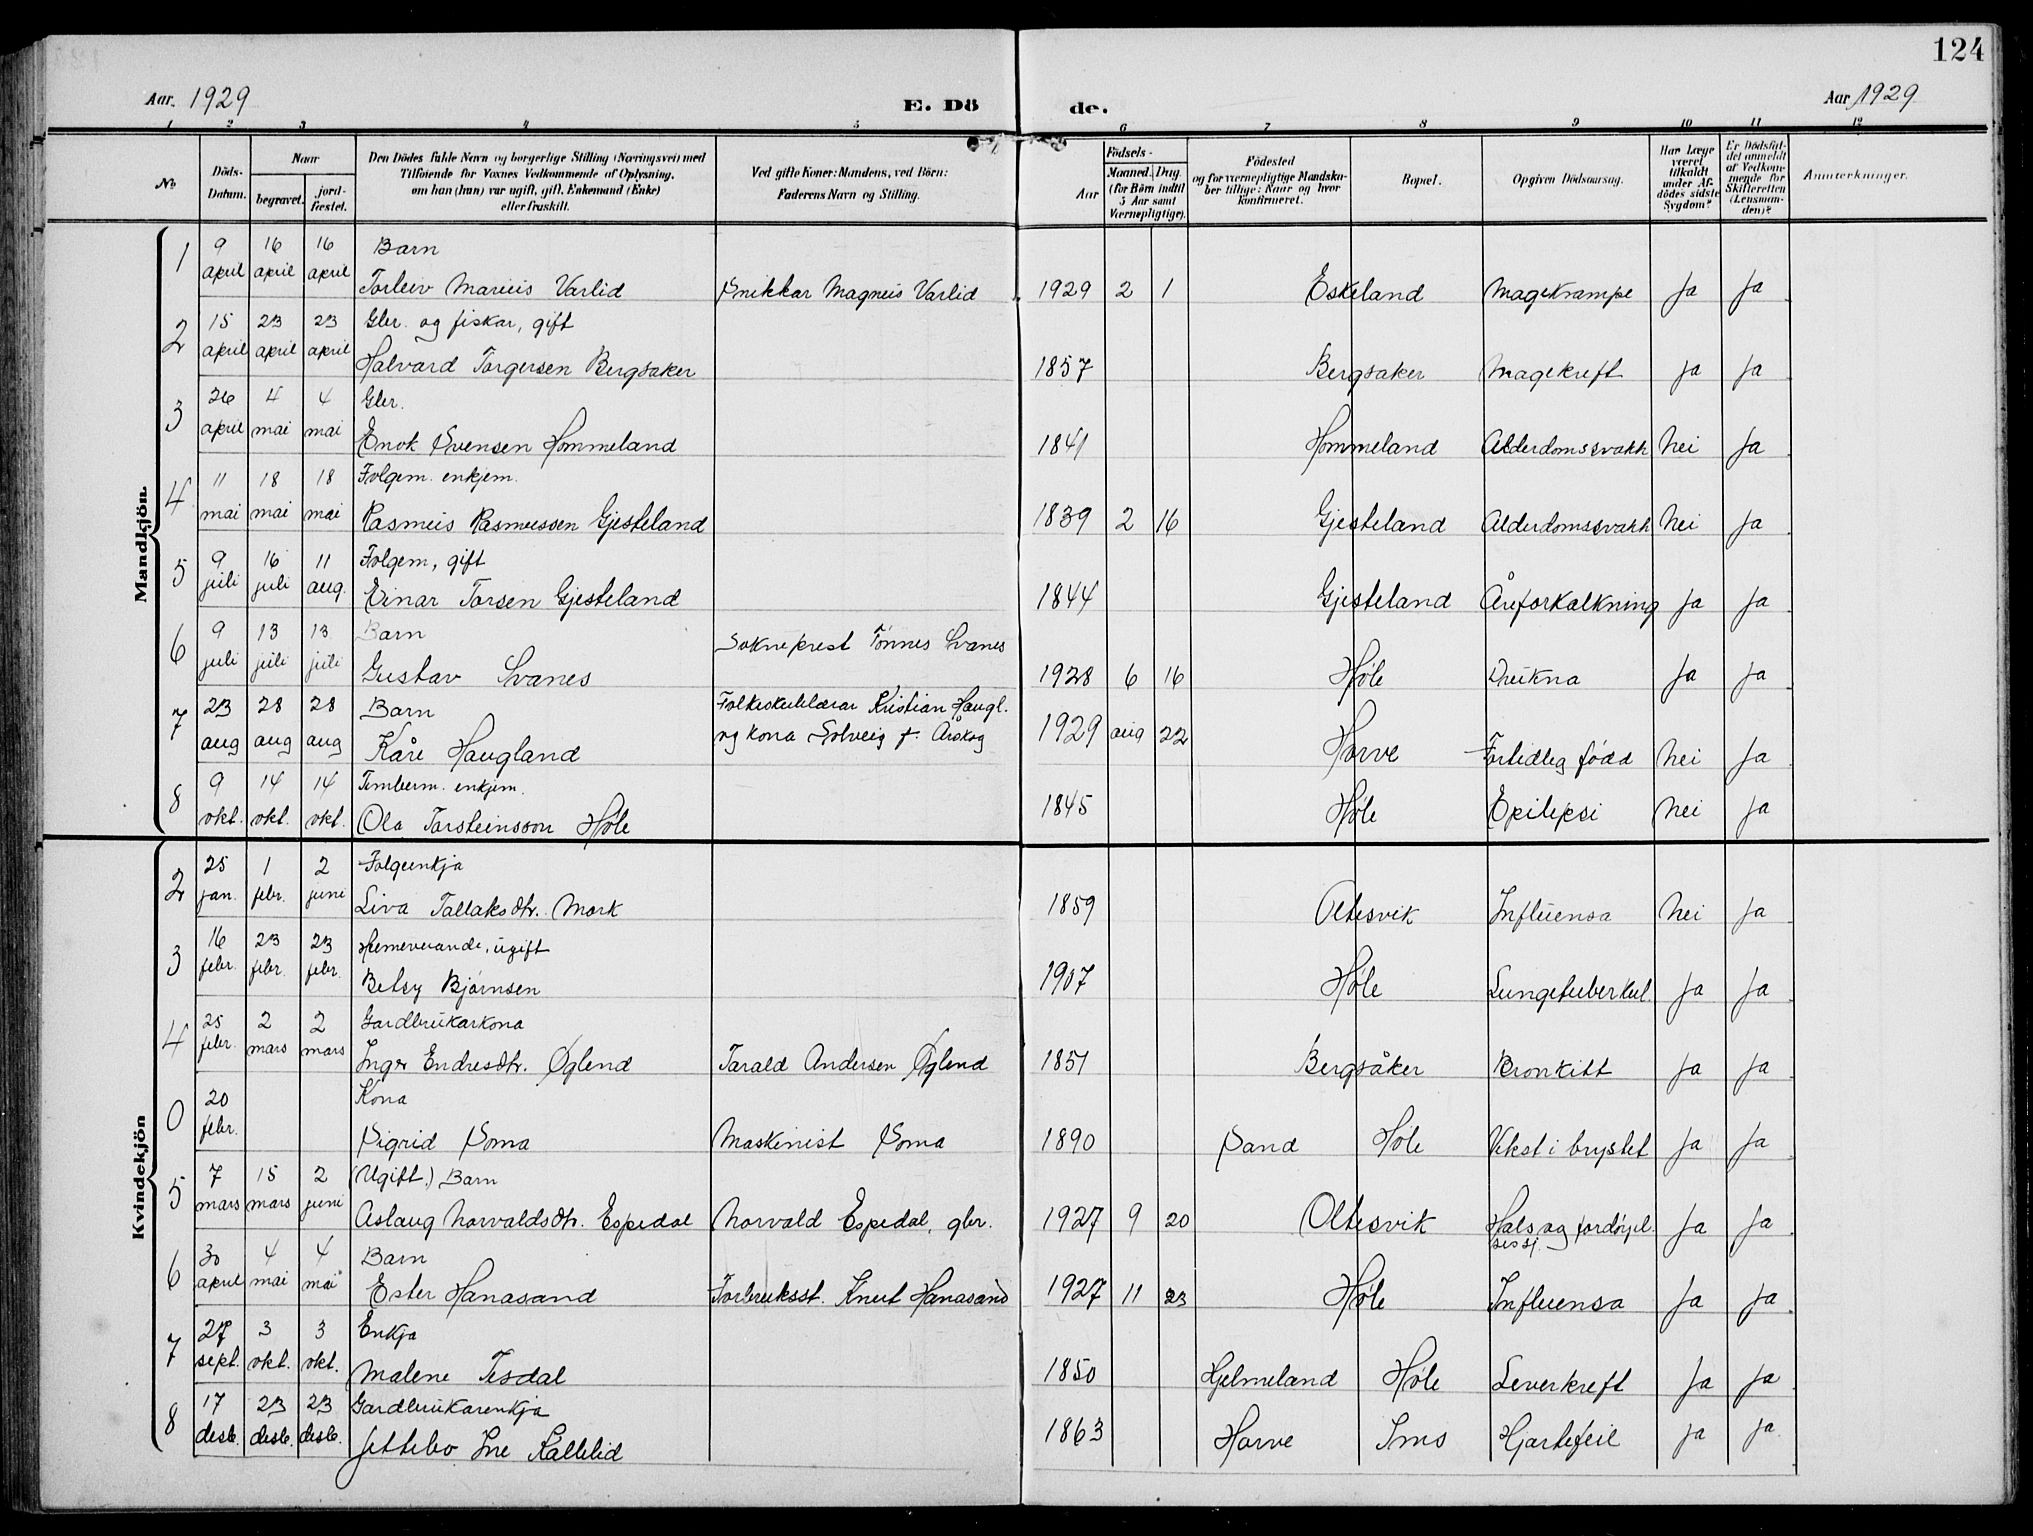 124
Aar. 1929
E. Dö
de.
Aar 1929
1 2 3 4 5 6 7 8 9 10 11 12
No
Döds-Datum.
Naar
begravet.
jord-fæstet.
Den Dödes fulde Navn og borgerlige Stilling (Næringsvei) med
Tilföiende for Voxnes Vedkommende af Oplysning,
om han (hun) var ugift, gift, Enkemand (Enke)
eller fraskilt.
Ved gifte Koner: Mandens, ved Börn:
Faderens Navn og Stilling.
Födsels-
Aar
Maaned. Dag.
(for Börn indtil
5 Aar samt
Værnepligtige).
Födested
og for værnepligtige Mandska-
ber tillige: Naar og hvor
konfirmeret.
Bopæl.
Opgiven Dödsaarsag.
Har Læge
været
tilkaldt
under Af-
dödes sidste
Sygdom?
Er Dödsfal-
det anmeldt
af Vedkom-
mende for
Skifteretten
(Lensman-
den)?
Anmerkninger.
Mandkjön.
1 9 april 16 april 16 april Barn
Torleiv Marius Varlid Snikkar Magnus Varlid 1929 2 1 Eskeland Magekrampe Ja Ja
2 15 april 23 april 23 april Gbr. og fiskar, gift
Halvard Torgersen Bergsaker 1857 Bergsaker Magekreft Ja Ja
3 26 april 4 mai 4 mai Gbr.
Enok Svensen Hommeland 1841 Hommeland Alderdomssvakh Nei Ja
4 11 mai 18 mai 18 mai Folgem. enkjem.
Rasmus Rasmussen Gjesteland 1839 2 16 Gjesteland Alderdomssvakh Nei Ja
5 9 juli 16 juli 11 aug. Folgem, gift
Einar Torsen Gjesteland 1844 Gjesteland Åreforkalkning Ja Ja
6 9 juli 13 juli 13 juli Barn
Gustav Svanes Sokneprest Tønnes Svanes 1928 6 16 Høle Ja Ja
7 23 aug 28 aug 28 aug Barn
Kåre Haugland Folkeskulelærar Kristian Haugl.
og kona Solveig f. Årskog 1929 aug 22 Horve Fortidleg fødd Nei Ja
8 9 okt. 14 okt. 14 okt. Timberm. enkjem.
Ola Torsteinsson Høle 1845 Høle Epilepsi Nei Ja
Kvindekjön
2 25 jan. 1 febr. 2 juni Folgeenkja
Siva Tallaksdtr. Mork 1859 Oltesvik Influensa Nei Ja
3 16 febr. 23 febr. 23 febr. Hemeverande, ugift
Betsy Bjørnsen 1907 Høle Lungetuberkul. Ja Ja
4 25 febr. 2 mars 2 mars Gardbrukarkona
Inger Endresdtr. Øglend Tarald Andersen Øglend 1851 Bergsåker Bronkitt Ja Ja
0 20 febr. Kona
Sigrid Soma Maskinist Soma 1890 Sand Høle Vekst i brystet Ja Ja
5 7 mars 15 mars 2 juni (Ugift.) Barn
Aslaug Norvaldsdtr. Espedal Norvald Espedal, gbr. 1927 9 20 Oltesvik Hals og fordøyel-
sessj. Ja Ja
6 30 april 4 mai 4 mai Barn
Ester Hanasand Forbruksst. Knut Hanasand 1927 11 23 Høle Influensa Ja Ja
7 27 sept. 3 okt. 3 okt. Enkja
Malene Tesdal 1850 Hjelmeland Høle Leverkreft Ja Ja
8 17 desb. 23 desb. 23 desb. Gardbrukarenkja
Jettebo Ine Kallelid 1863 Horve Ims Hjartefeil Ja Ja